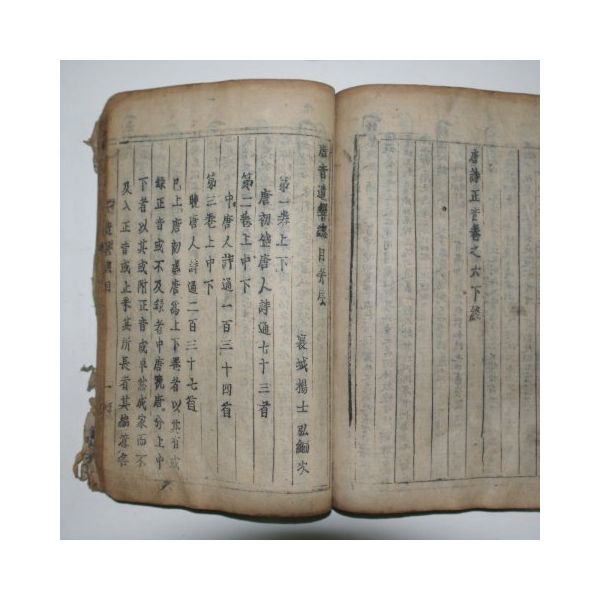 唐詩正音卷之六下終
唐音遺響總目并序
襄城楊士弘編次
第一卷上下
唐初盛唐人詩通七十三首
第二卷上中下
中唐人詩通一百三十四首
第三卷上中下
晚唐人詩通二百三十七首
已上唐初盛唐爲上下卷者以其有或
錄正音或不及錄者中唐晚唐分上中
下者以其或附正音或卓然成家而不
及入正音或止采其所長者其編